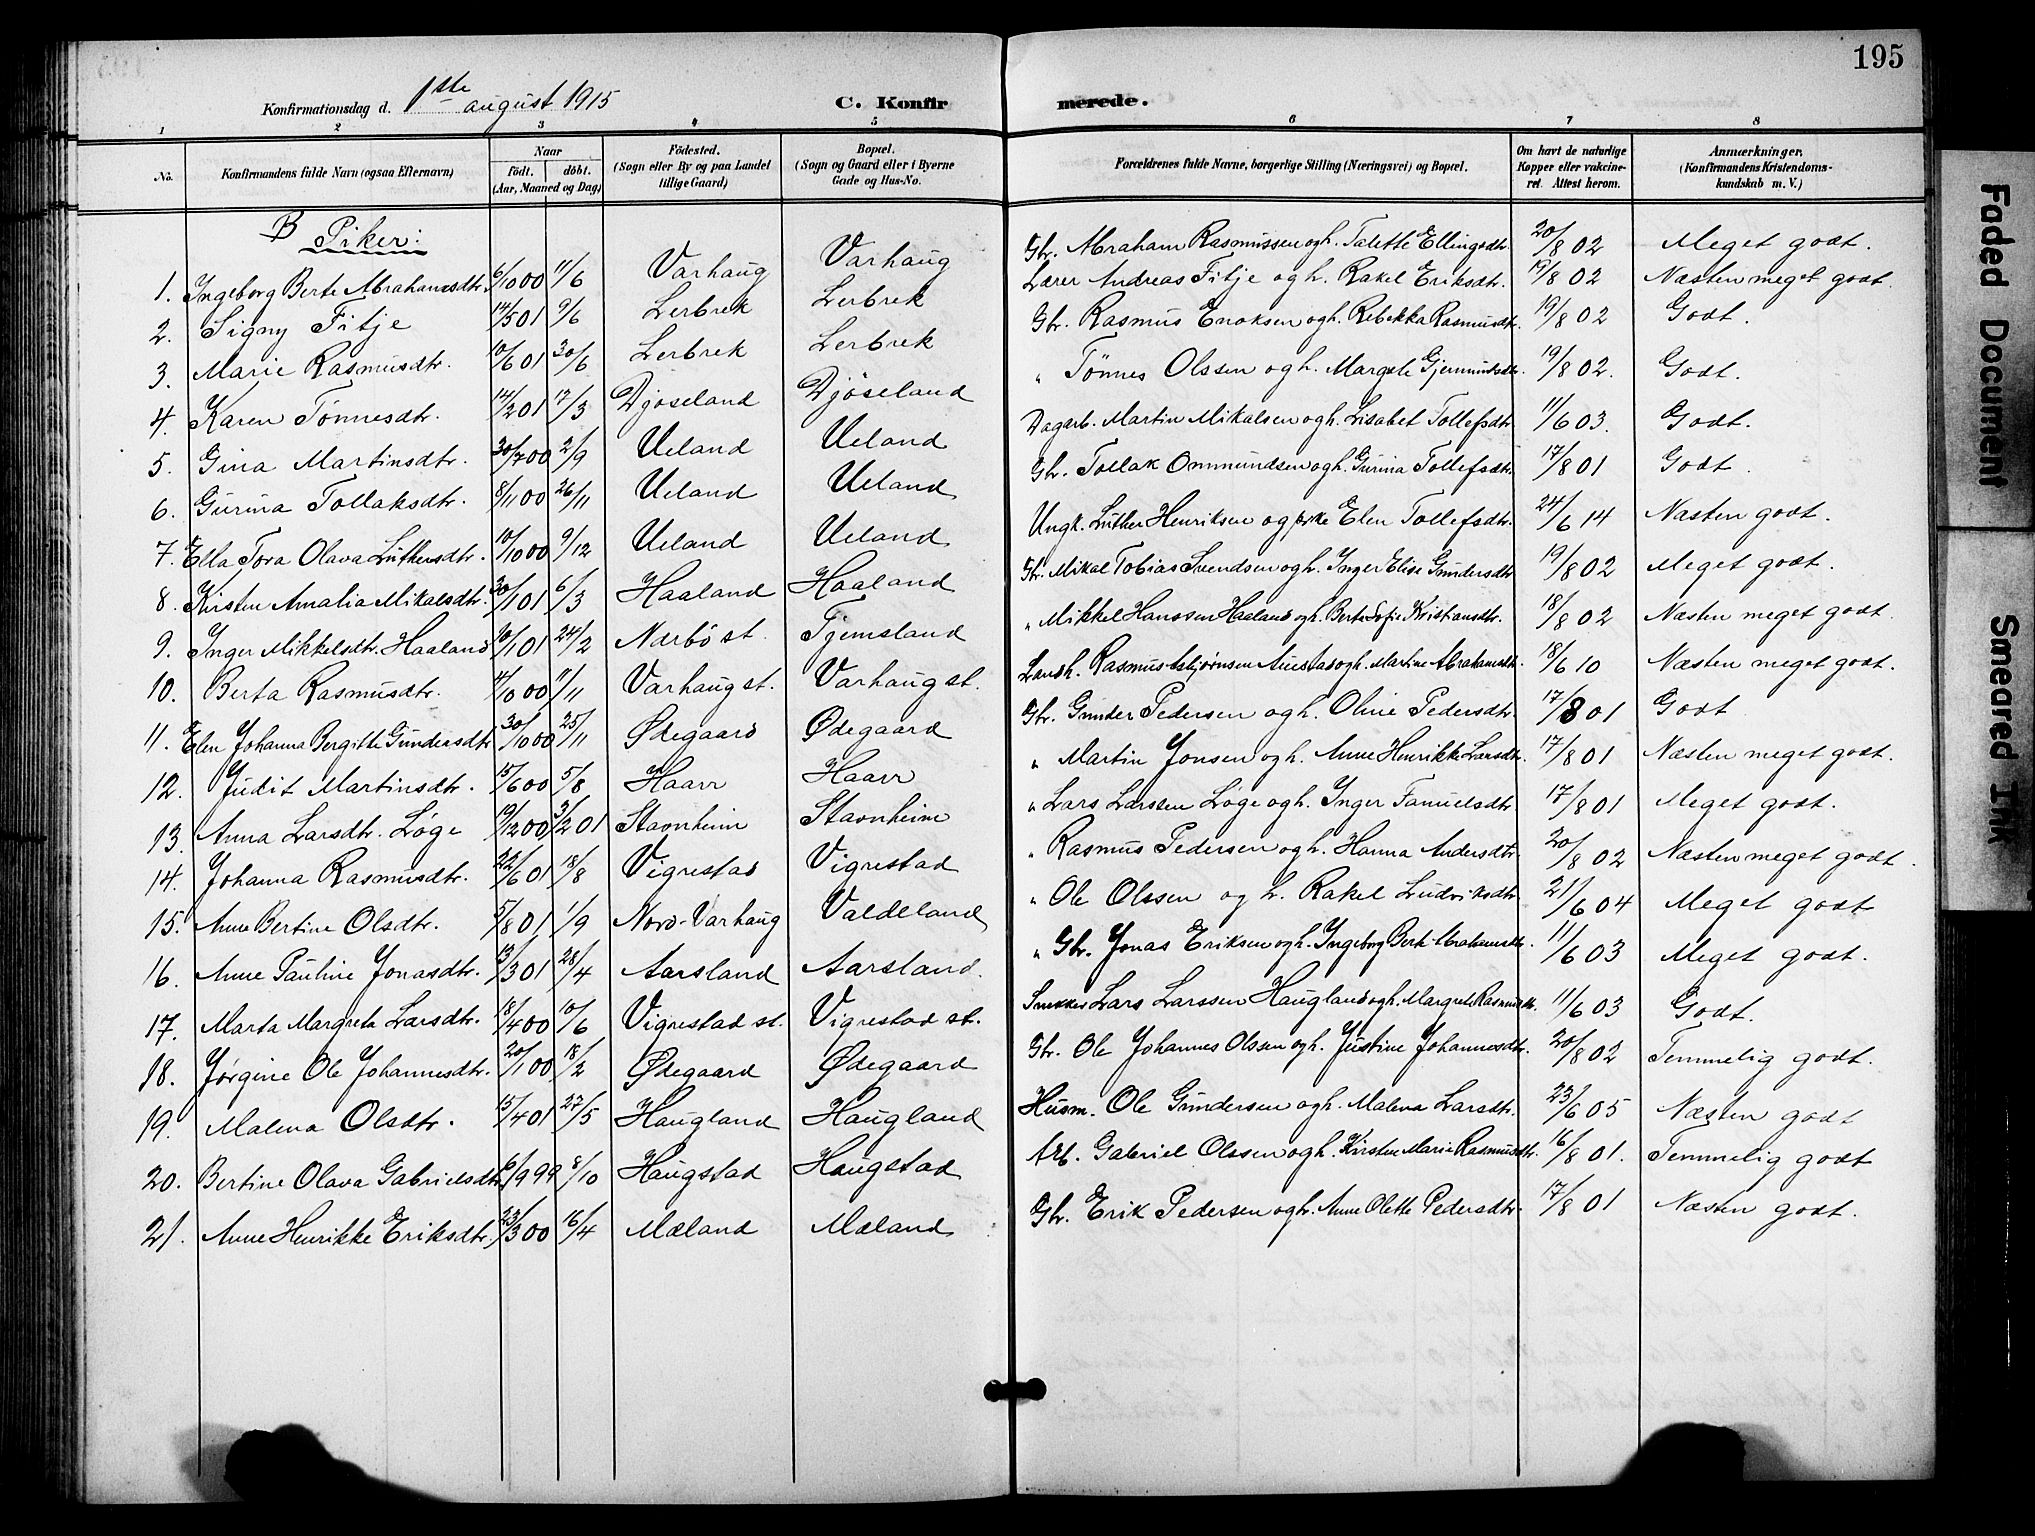 195
Konfirmationsdag d. 1ste august 1915 C. Konfirmerede.
1 2 3 4 5 6 7 8
No. Konfirmandens fulde Navn (ogsaa Efternavn) Naar födt. döbt. (Aar, Maaned og Dag) Födested. (Sogn eller By og paa Landet tillige Gaard) Bopæl. (Sogn og Gaard eller i Byerne Gade og Hus-No. Forældrenes fulde Navne, borgerlige Stilling (Næringsvei) og Bopæl. Om havt de naturlige Kopper eller vakcineret. Attest herom. Anmærkninger. (Konfirmandens Kristendomskundskab m. V.)
B Piker:
1. Ingeborg Berte Abrahamsdtr. 6/10 00 11/6 Varhaug Varhaug Gbr. Abraham Rasmussen og h. Talette Ellingsdtr. 20/8 02 Meget godt.
2. Signy Fitje 14/5 01 9/6 Lerbrek Lerbrek Lærer Andreas Fitje og h. Rakel Eriksdtr. 19/8 02 Næsten meget godt.
3. Marie Rasmusdtr. 10/6 01 30/6 Lerbrek Lerbrek Gbr. Rasmus Enoksen og h. Rebekka Rasmusdtr. 19/8 02 Godt.
4. Karen Tönnesdtr. 14/2 01 17/3 Djöseland Djöseland " Tönnes Olssen og h. Margete Gjermundsdtr. 19/8 02. Godt.
5. Gina Martinsdtr. 30/7 00 2/9 Ueland Ueland Dagarb. Martin Mikalsen og h. Lisabet Tollefsdtr. 11/6 03. Godt.
6. Gurina Tollaksdtr. 8/11 00 26/11 Ueland Ueland Gbr. Tollak Ommundsen og h. Gurina Tollefsdtr. 17/8 01 Godt.
7. Ella Tora Olava Luthersdtr. 10/10 00 9/12 Ueland Ueland Ungk. Luther Henriksen og pike Elen Tollefsdtr. 24/6 14 Næsten godt.
8. Kirsten Amalia Mikalsdtr. 30/1 01 6/3 Haaland Haaland Gbr. Mikal Tobias Svendsen og h. Inger Elise Gundersdtr. 19/8 02 Meget godt.
9. Inger Mikkelsdtr. Haaland 10/1 01 24/2 Nærbö st. Tjemsland " Mikkel Hanssen Haaland og h. Berta Sofie Kristiansdtr. 18/8 02 Næsten meget godt.
10. Berta Rasmusdtr. 4/10 00 11/11 Varhaug st. Varhaug st. Landh. Rasmus Asbjørnsen Austad og h. Martine Abrahamsdtr. 18/6 10 Næsten meget godt.
11. Elen Johanna Bergitte Gundersdtr. 30/10 00 25/11 Ødegaard Ødegaard Gbr. Gunder Pedersen og h. Oline Pedersdtr. 17/8 01 Godt
12. Judit Martinsdtr. 15/6 00 5/8 Haarr Haarr " Martin Jonsen og h. Anne Henrikke Larsdtr. 17/8 01 Næsten meget godt.
13. Anna Larsdtr. Løge 19/12 00 3/2 01 Stavnheim Stavnheim " Lars Larssen Løge og h. Inger Tanuelsdtr. 17/8 01 Meget godt.
14. Johanna Rasmusdtr. 22/6 01 18/8 Vigrestad Vigrestad " Rasmus Pedersen og h. Hanna Andersdtr. 20/8 02 Næsten meget godt.
15. Anne Bertine Olsdtr. 5/8 01 1/9 Nord-Varhaug Valdeland " Ole Olssen og h. Rakel Ludviksdtr. 21/6 04 Meget godt
16. Anne Pauline Jonasdtr. 13/3 01 28/4 Aarsland Aarsland. " Gbr. Jonas Eriksen og h. Ingeborg Berte Abrahamsdtr. 11/6 03 Meget godt.
17. Marta Margreta Larsdtr. 18/4 00 10/6 Vigrestad st. Vigrestad st. Snekker Lars Larssen Haugland og h. Margrete Rasmusdtr. 11/6 03 Godt.
18. Jørgine Ole Johannesdtr. 20/1 00 18/2 Ødegaard Ødegaard Gbr. Ole Johannes Olssen og h. Justine Johannesdtr. 20/8 02 Temmelig godt.
19. Malena Olsdtr. 15/4 01 27/5 Haugland Haugland Husm. Ole Gundersen og h. Malena Larsdtr. 23/6 05 Næsten godt
20. Bertine Olava Gabrielsdtr. 6/9 99 8/10 Haugstad Haugstad Arb. Gabriel Olssen og h. Kirsten Marie Rasmusdtr. 16/8 01. Temmelig godt
21. Anne Henrikke Eriksdtr. 23/3 00 16/4 Mæland Mæland Gbr. Erik Pedersen og h. Anne Olette Pedersdtr. 17/8 01 Næsten godt.
Faded Document
Smeared Ink